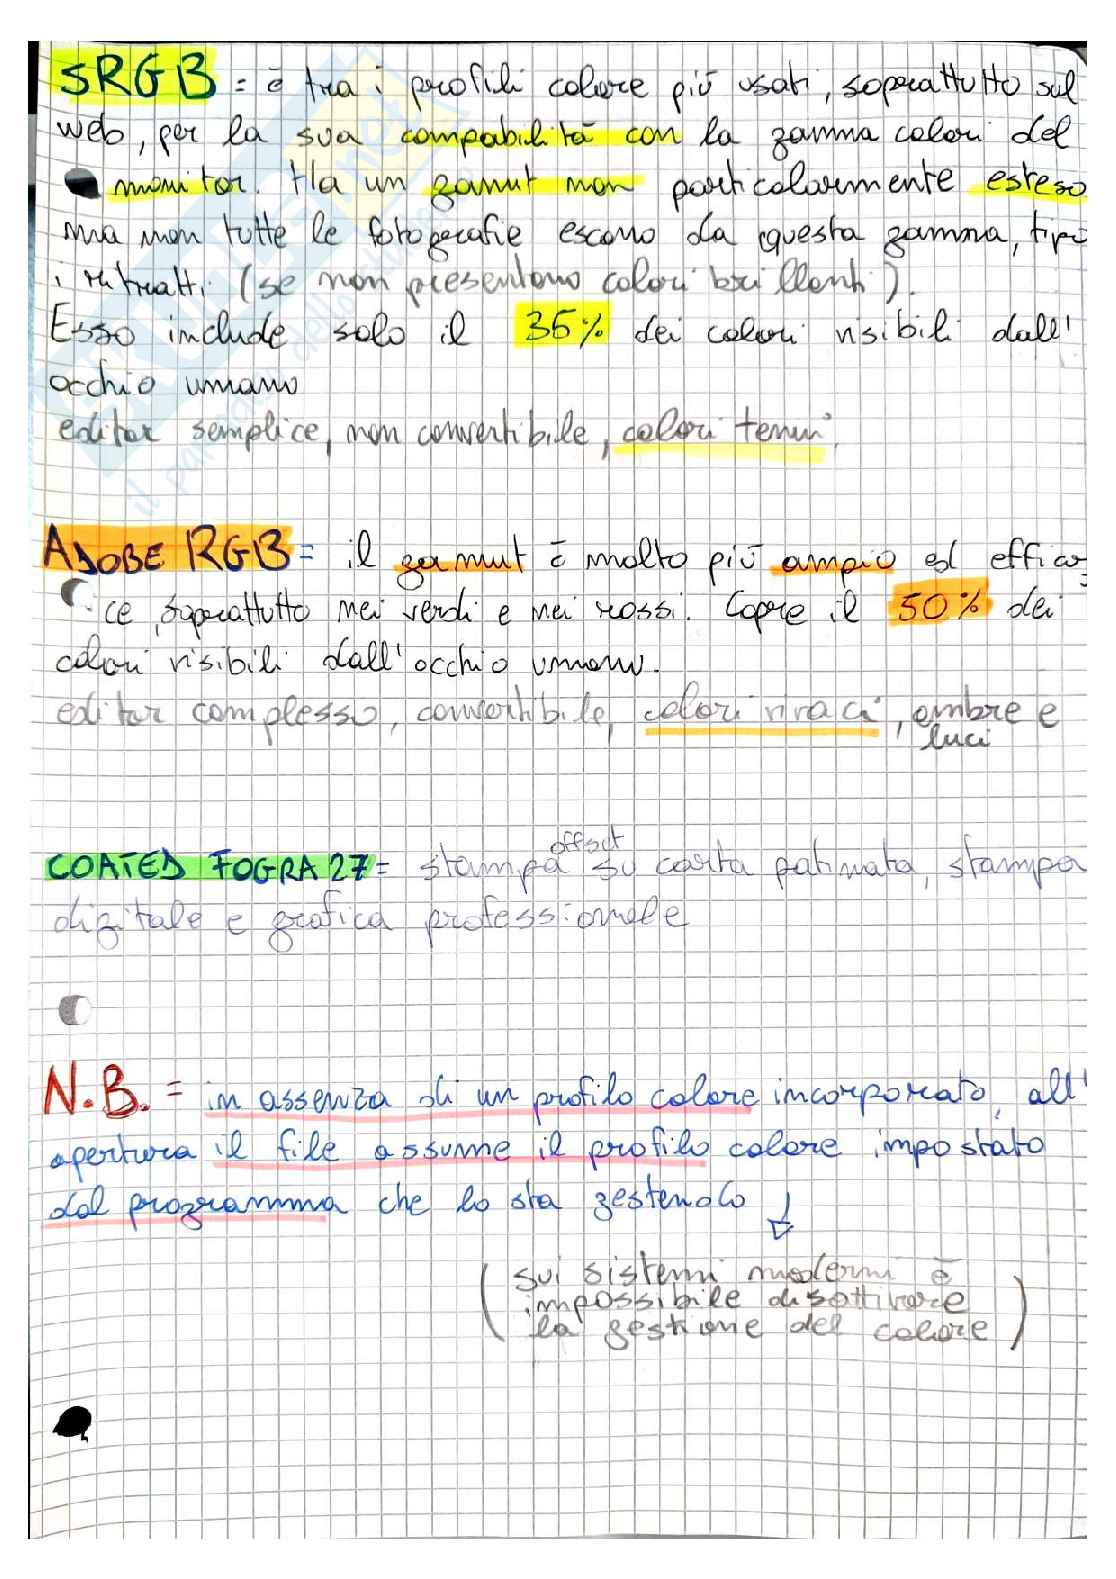 sRGB = è tra i profili colore più usati, soprattutto sul
web, per la sua compabilità con la gamma colori del
monitor. Ha un gamut non particolarmente esteso
ma non tutte le fotografie escono da questa gamma, tipo
i ritratti (se non presentono colori brillanti).
Esso include solo il 35% dei colori visibili dall'
occhio umano
editor semplice, non convertibile, colori tenui.
ADOBE RGB = il gamut è molto più ampio ed effica
ce, soprattutto nei verdi e nei rossi. Copre il 50% dei
colori visibili dall'occhio umano.
editor complesso, convertibile, colori vivaci, ombre e
luci
COATED FOGRA 27 = stampa offset su carta patinata, stampa
digitale e grafica professionale
N.B. = in assenza di un profilo colore incorporato, all'
apertura il file assume il profilo colore impostato
dal programma che lo sta gestendo
(sui sistemi moderni è
impossibile disattivare
la gestione del colore)